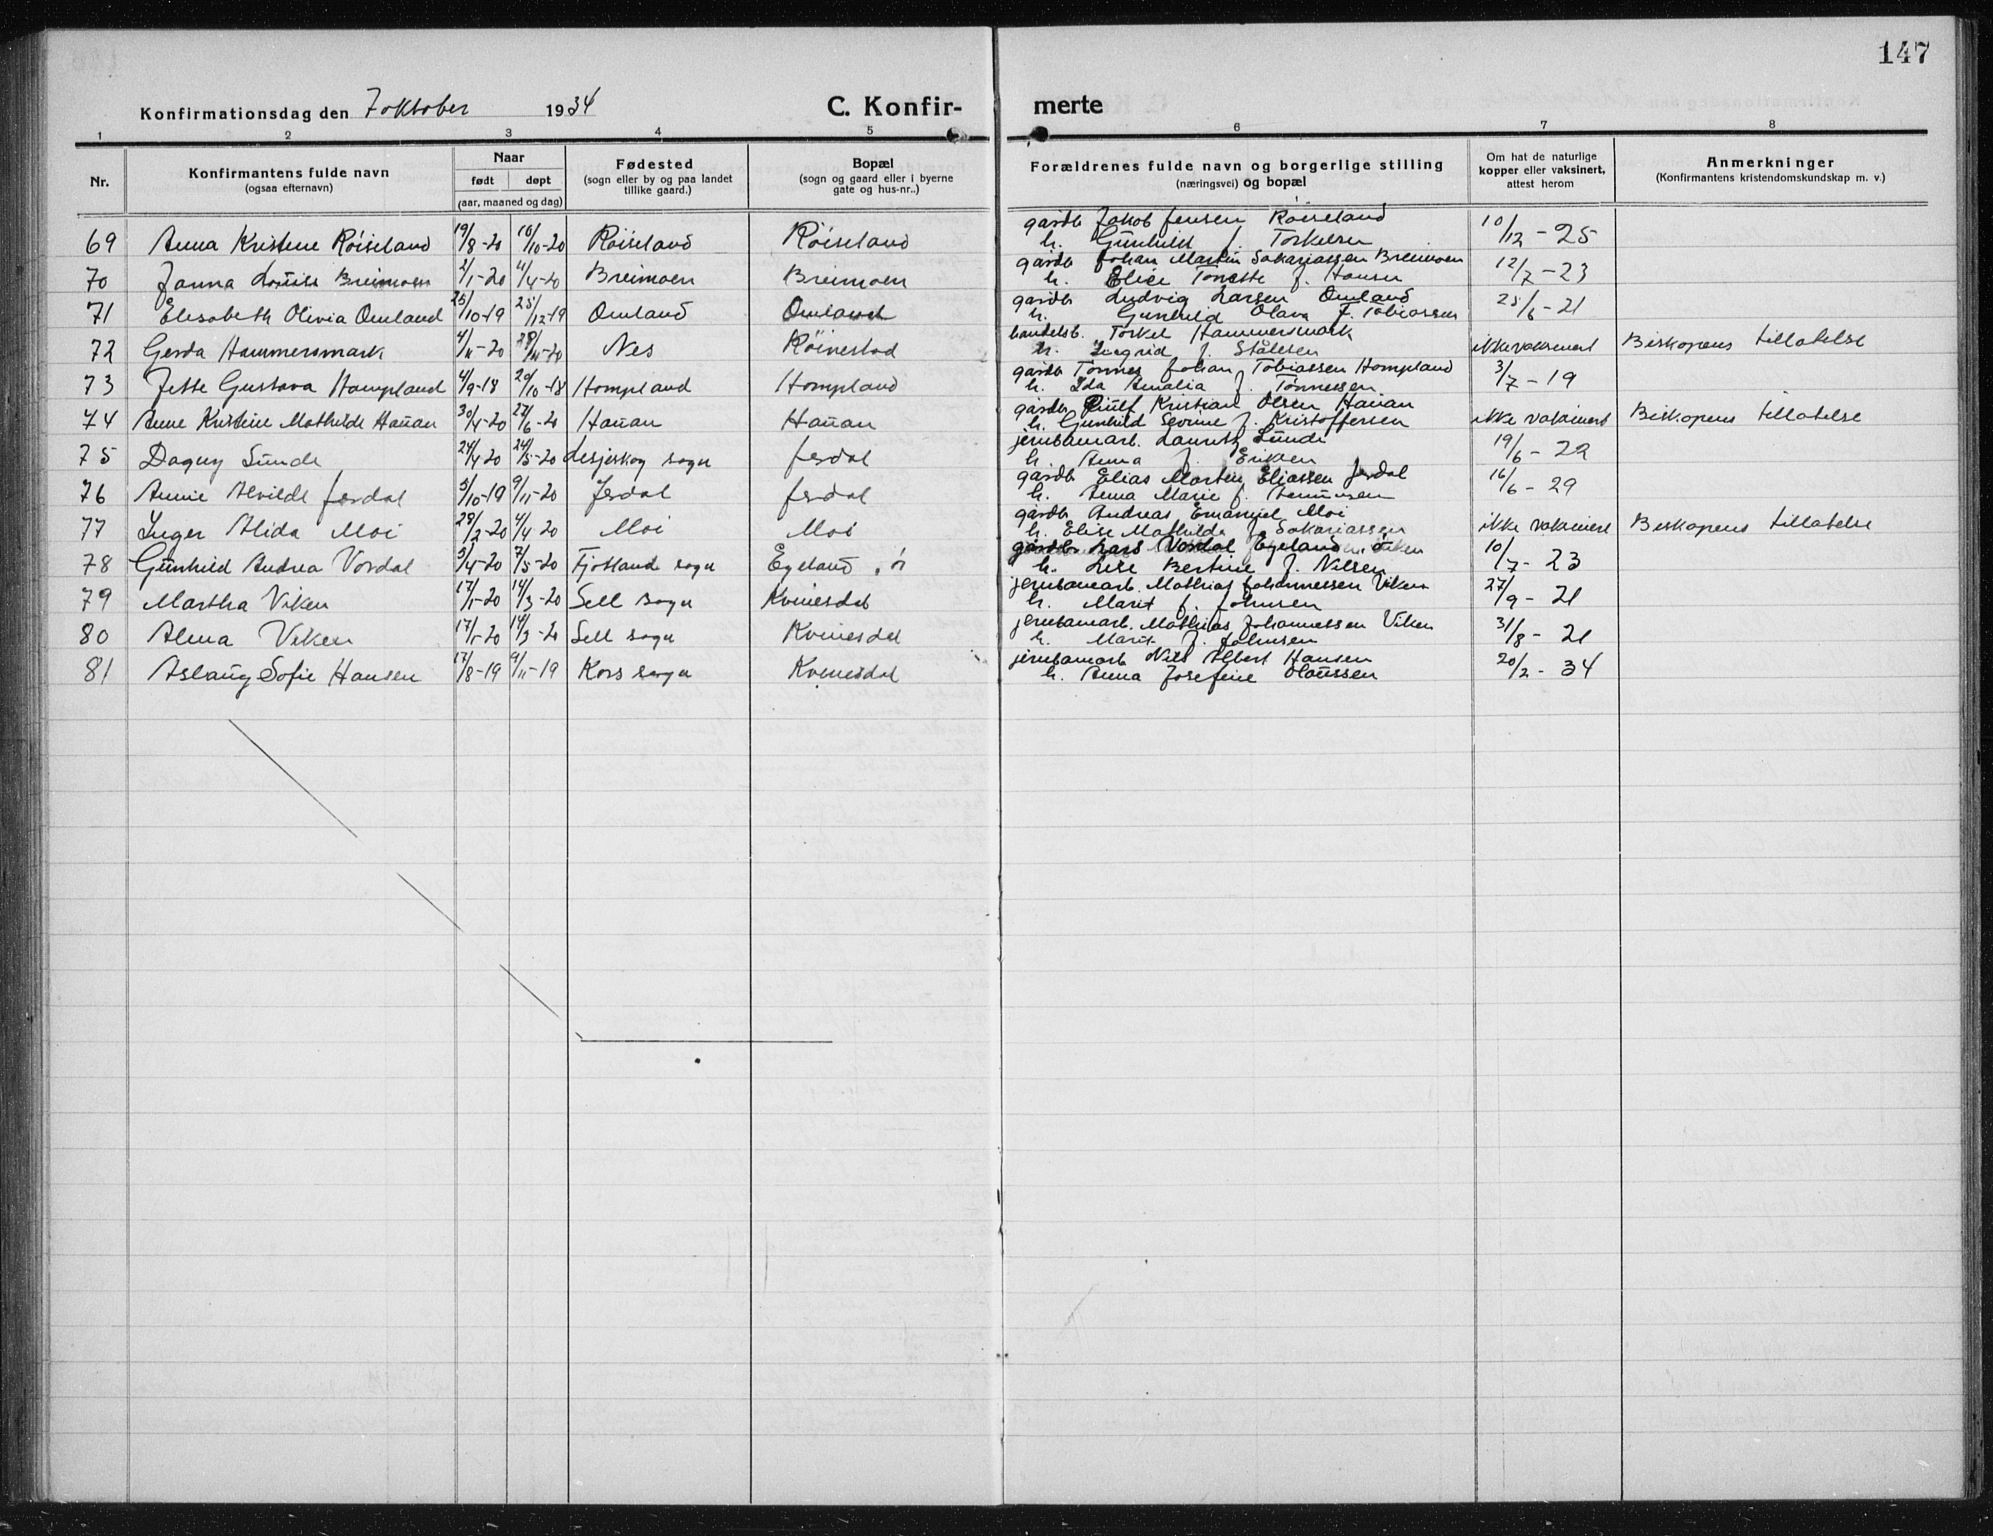 147
Konfirmationsdag den 7 oktober 1934 C. Konfir- merte
1 2 3 4 5 6 7 8
Nr. Konfirmantens fulde navn (ogsaa efternavn) Naar født døpt (aar, maaned og dag) Fødested (sogn eller by og paa landet tillike gaard.) Bopæl (sogn og gaard eller i byerne gate og hus-nr..) Forældrenes fulde navn og borgerlige stilling (næringsvei) og bopæl Om hat de naturlige kopper eller vaksinert, attest herom Anmerkninger (Konfirmantens kristendomskundskap m. v.)
69 Anna Kristine Röiseland 19/8-20 10/10-20 Röiseland Röiseland gårdb Jakob Jensen Röiseland 10/12-25
h. Gunhild f. Torkelsen
70 Janna Louise Breimoen 2/1-20 4/4-20 Breimoen Breimoen gårdb Johan Martin Sakariassen Breimoen 12/7-23
h. Elise Tonette f. Hansen
71 Elisabeth Olivia Omland 25/10-19 25/12-19 Omland Omland gårdb Ludvig Larsen Omland 28/6-21
h. Gunhild Olava f. Tobiassen
72 Gerda Hammersmark 4/11-20 28/11-20 Nes Röinestad handelsb. Torkel Hammersmark ikke vaksinert Biskopens tillatelse
h. Ingrid f. Stålesen
73 Jette Gustava Hompland 4/9-18 20/10-18 Hompland Hompland gårdb Tønnes Johan Tobiassen Hompland 3/7-19
h. Ida Amalia f. Tønnessen
74 Anne Kristine Mathilde Haüan 30/4-20 27/6-20 Haüan Haüan gårdb Kristian Olsen Haüan ikke vaksinert Biskopens tillatelse
h. Gunhild Sevrine f. Kristoffersen
75 Dagny Sunde 24/4 20 24/5-20 Lesjeskog sogn Jerdal jernbanearb. Lauritz Sunde 19/6-29
h. Anna f. Eriksen
76 Annie Alvilde Jerdal 5/10-19 9/11-20 Jerdal Jerdal gårdb Elias Martin Eliassen Jerdal 16/6-29
h. Anna Marie f.
77 Inger Alida Moi 28/2-20 4/4-20 Moi Moi gårdb Andreas Emanuel Moi ikke vaksinert Biskopens tillatelse
h. Elise Mathilde f. Sakariassen
78 Günhild Andrea Vordal 5/4-20 7/5-20 Fjotland sogn Egeland, gårdb Lars Vordal Egeland 10/7-23
h. Lise Bertine f. Nilsen
79 Martha Viken 17/1-20 14/3-20 Sell sogn Kvinesdal jernbanearb. Mathias Johannessen Viken 27/9-21
h. Marit f. Johnsen
80 Alma Viken 17/1-20 14/3-20 Sell sogn Kvinesdal jernbanearb. Mathias Johannessen Viken 31/8-21
h. Marit f. Johnsen
81 Aslaug Sofie Hansen 17/8-19 9/11-19 Kors sogn Kvinesdal jernbanearb Nils Albert Hansen 20/2-34
h. Anna Josefine Olaussen